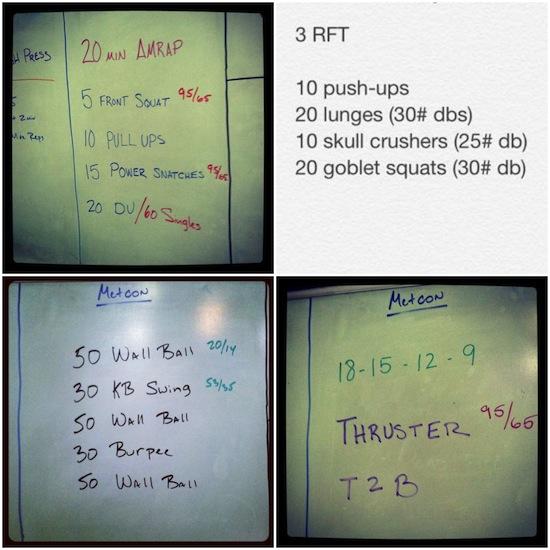 PRESS
20 MIN AMRAP
5 FRONT SQUAT 95/65
10 PULL UPS
15 POWER SNATCHES 95/65
20 DU/60 Singles
3 RFT
10 push-ups
20 lunges (30# dbs)
10 skull crushers (25# db)
20 goblet squats (30# db)
Metcon
50 Wall Ball 20/14
30 KB Swing 53/35
50 Wall Ball
30 Burpee
50 Wall Ball
Metcon
18-15-12-9
THRUSTER 95/65
T2B